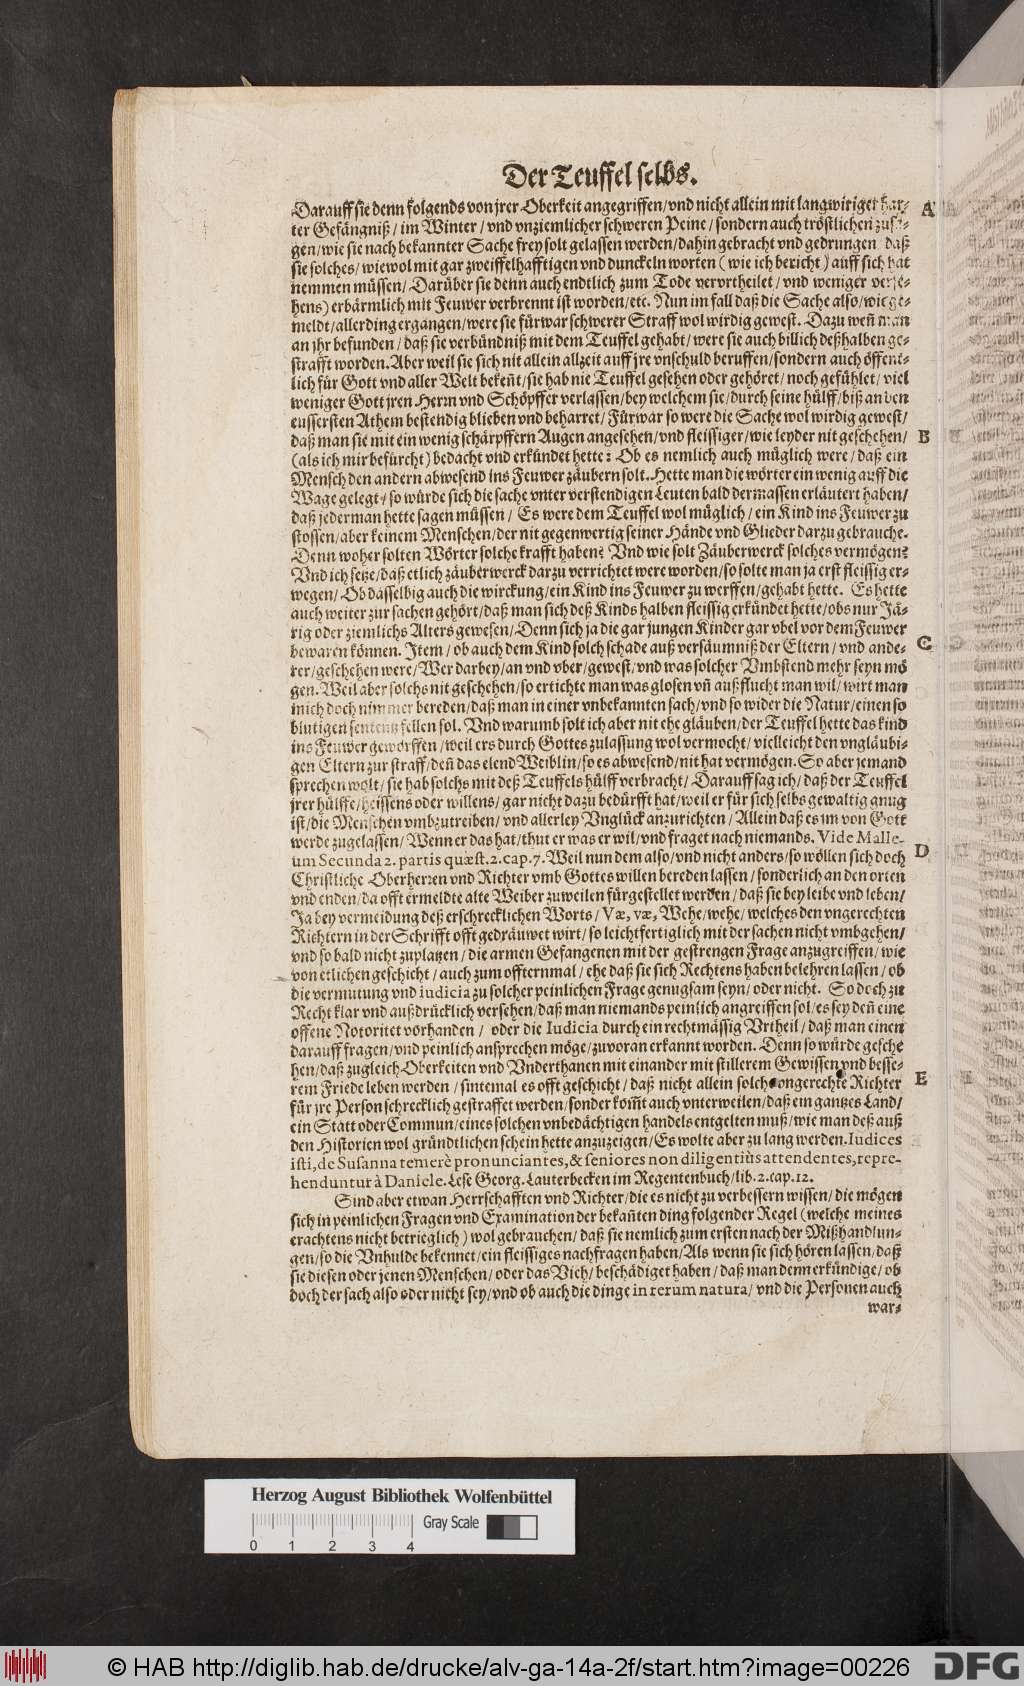 Der Teuffel selbs.
Darauff sie denn folgends von jrer Oberkeit angegriffen/vnd nicht allein mit langwiriger har-
A
ter Gefängniß/im Winter/vnd vnziemlicher schweren Peine/sondern auch tröstlichen zusa-
gen/wie sie nach bekannter Sache frey solt gelassen werden/dahin gebracht vnd gedrungen daß
sie solches/wiewol mit gar zweiffelhafftigen vnd dunckeln worten (wie ich bericht) auff sich hat
nemmen müssen/Darüber sie denn auch endtlich zum Tode verortheilet/vnd weniger verse-
hens) erbärmlich mit Feuwer verbrennt ist worden/etc. Nun im fall daß die Sache also/wie ge-
meldt/allerding ergangen/were sie fürwar schwerer Straff wol wirdig gewest. Dazu weñ man
an jhr befunden/daß sie verbündniß mit dem Teuffel gehabt/were sie auch billich deßhalben ge-
strafft worden. Aber weil sie sich nit allein allzeit auff jre vnschuld beruffen/sondern auch öffent-
lich für Gott vnd aller Welt bekeñt/sie hab nie Teuffel gesehen oder gehöret/noch gefühlet/viel
weniger Gott jren Herrn vnd Schöpffer verlassen/bey welchem sie/durch seine hülff/biß an den
eussersten Athem bestendig blieben vnd beharret/Fürwar so were die Sache wol wirdig gewest/
daß man sie mit ein wenig schärpffern Augen angesehen/vnd fleissiger/wie leyder nit geschehen/
B
(als ich mir befürcht) bedacht vnd erkündet hette: Ob es nemlich auch müglich were/daß ein
Mensch den andern abwesend ins Feuwer zäubern solt. Hette man die wörter ein wenig auff die
Wage gelegt/so würde sich die sache vnter verstendigen Leuten bald dermassen erläutert haben/
daß jederman hette sagen müssen/Es were dem Teuffel wol müglich/ein Kind ins Feuwer zu
stossen/aber keinem Menschen/der nit gegenwertig seiner Hände vnd Glieder darzu gebrauche.
Denn woher solten Wörter solche krafft haben? Vnd wie solt Zäuberwerck solches vermögen?
Vnd ich setze/daß etlich zäuberwerck darzu verrichtet were worden/so solte man ja erst fleissig er-
wegen/Ob dasselbig auch die wirckung/ein Kind ins Feuwer zu werffen/gehabt hette. Es hette
auch weiter zur sachen gehört/daß man sich deß Kinds halben fleissig erkündet hette/obs nur Jä-
rig oder ziemlichs Alters gewesen/Denn sich ja die gar jungen Kinder gar vbel vor dem Feuwer
bewaren können. Item/ob auch dem Kind solch schade auß versäumniß der Eltern/vnd ande-
C
rer/geschehen were/Wer darbey/an vnd vber/gewest/vnd was solcher Vmbstend mehr seyn mö
gen. Weil aber solchs nit geschehen/so ertichte man was glosen vñ außflucht man wil/wirt man
mich doch nimmer bereden/daß man in einer vnbekannten sach/vnd so wider die Natur/einen so
blutigen sententz fellen sol. Vnd warumb solt ich aber nit ehe gläuben/der Teuffel hette das kind
ins Feuwer geworffen/weil ers durch Gottes zulassung wol vermocht/vielleicht den vngläubi-
gen Eltern zur straff/deñ das elend Weiblin/so es abwesend/nit hat vermögen. So aber jemand
sprechen wolt/sie hab solchs mit deß Teuffels hülff verbracht/Darauff sag ich/daß der Teuffel
jrer hülffe/heissens oder willens/gar nicht dazu bedürfft hat/weil er für sich selbs gewaltig gnug
ist/die Menschen vmbzutreiben/vnd allerley Vnglück anzurichten/Allein daß es im von Gott
werde zugelassen/Wenn er das hat/thut er was er wil/vnd fraget nach niemands. Vide Malle-
D
um Secunda 2. partis quæst. 2. cap. 7. Weil nun dem also/vnd nicht anders/so wöllen sich doch
Christliche Oberherren vnd Richter vmb Gottes willen bereden lassen/sonderlich an den orten
vnd enden/da offt ermeldte alte Weiber zuweilen fürgestellet werden/daß sie bey leibe vnd leben/
Ja bey vermeidung deß erschrecklichen Worts/Væ, væ, Wehe/wehe/welches den vngerechten
Richtern in der Schrifft offt gedräuwet wirt/so leichtfertiglich mit der sachen nicht vmbgehen/
vnd so bald nicht zuplatzen/die armen Gefangenen mit der gestrengen Frage anzugreiffen/wie
von etlichen geschicht/auch zum offternmal/ehe daß sie sich Rechtens haben belehren lassen/ob
die vermutung vnd iudicia zu solcher peinlichen Frage genugsam seyn/oder nicht. So doch zu
Recht klar vnd außdrücklich versehen/daß man niemands peinlich angreiffen sol/es sey deñ eine
offene Notoritet vorhanden/oder die Iudicia durch ein rechtmässig Vrtheil/daß man einen
darauff fragen/vnd peinlich ansprechen möge/zuvoran erkannt worden. Denn so würde gesche
hen/daß zugleich Oberkeiten vnd Vnderthanen mit einander mit stillerem Gewissen vnd besse-
rem Friede leben werden/sintemal es offt geschicht/daß nicht allein solch vngerechte Richter
E
für jre Person schrecklich gestraffet werden/sonder kom̃t auch vnterweilen/daß ein gantzes Land/
ein Statt oder Commun/eines solchen vnbedächtigen handels entgelten muß/wie man deß auß
den Historien wol gründtlichen schein hette anzuzeigen/Es wolte aber zu lang werden. Iudices
isti, de Susanna temerè pronunciantes, & seniores non diligentiùs attendentes, repre-
henduntur à Daniele. Lese Georg. Lauterbecken im Regentenbuch/lib. 2. cap. 12.
Sind aber etwan Herrschafften vnd Richter/die es nicht zu verbessern wissen/die mögen
sich in peinlichen Fragen vnd Examination der bekañten ding folgender Regel (welche meines
erachtens nicht betrieglich) wol gebrauchen/daß sie nemlich zum ersten nach der Mißhandlun-
gen/so die Vnhulde bekennet/ein fleissiges nachfragen haben/Als wenn sie sich hören lassen/daß
sie diesen oder jenen Menschen/oder das Vieh/beschädiget haben/daß man denn erkündige/ob
doch der sach also oder nicht sey/vnd ob auch die dinge in rerum natura/vnd die Personen auch
war-
Herzog August Bibliothek Wolfenbüttel
Gray Scale
0 1 2 3 4
© HAB http://diglib.hab.de/drucke/alv-ga-14a-2f/start.htm?image=00226
DFG